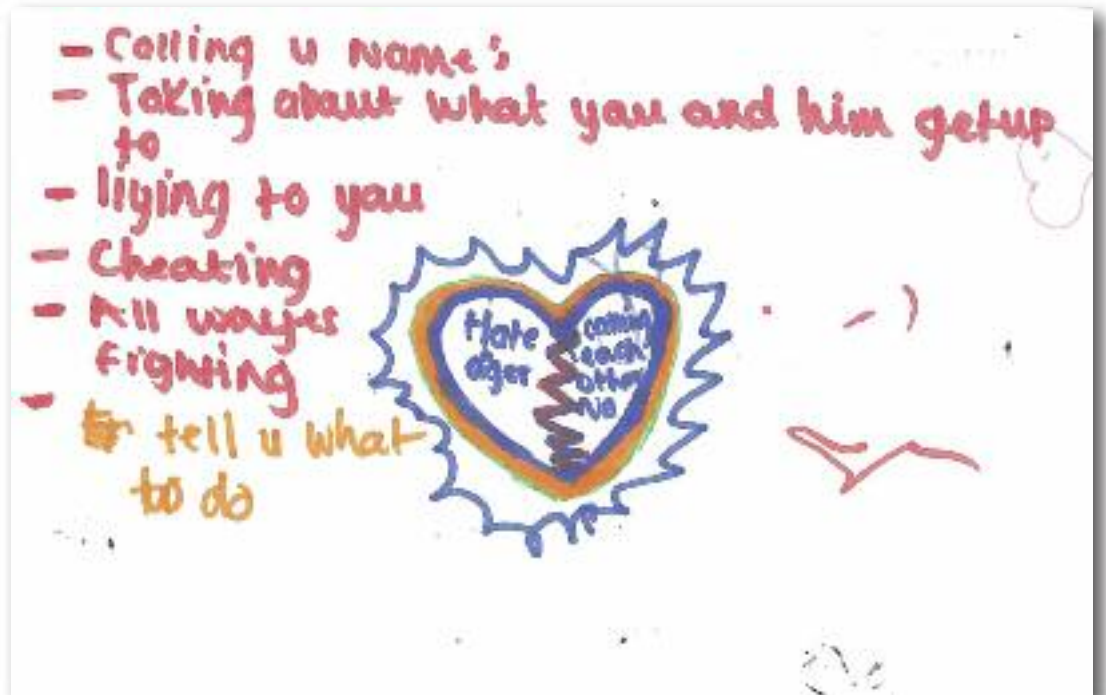 - Calling u Name's
- Taking about what you and him getup
to
- liying to you
- Cheating
- All wayes
fighting
-
tell u what
to do
Hate
calling
each
other
No